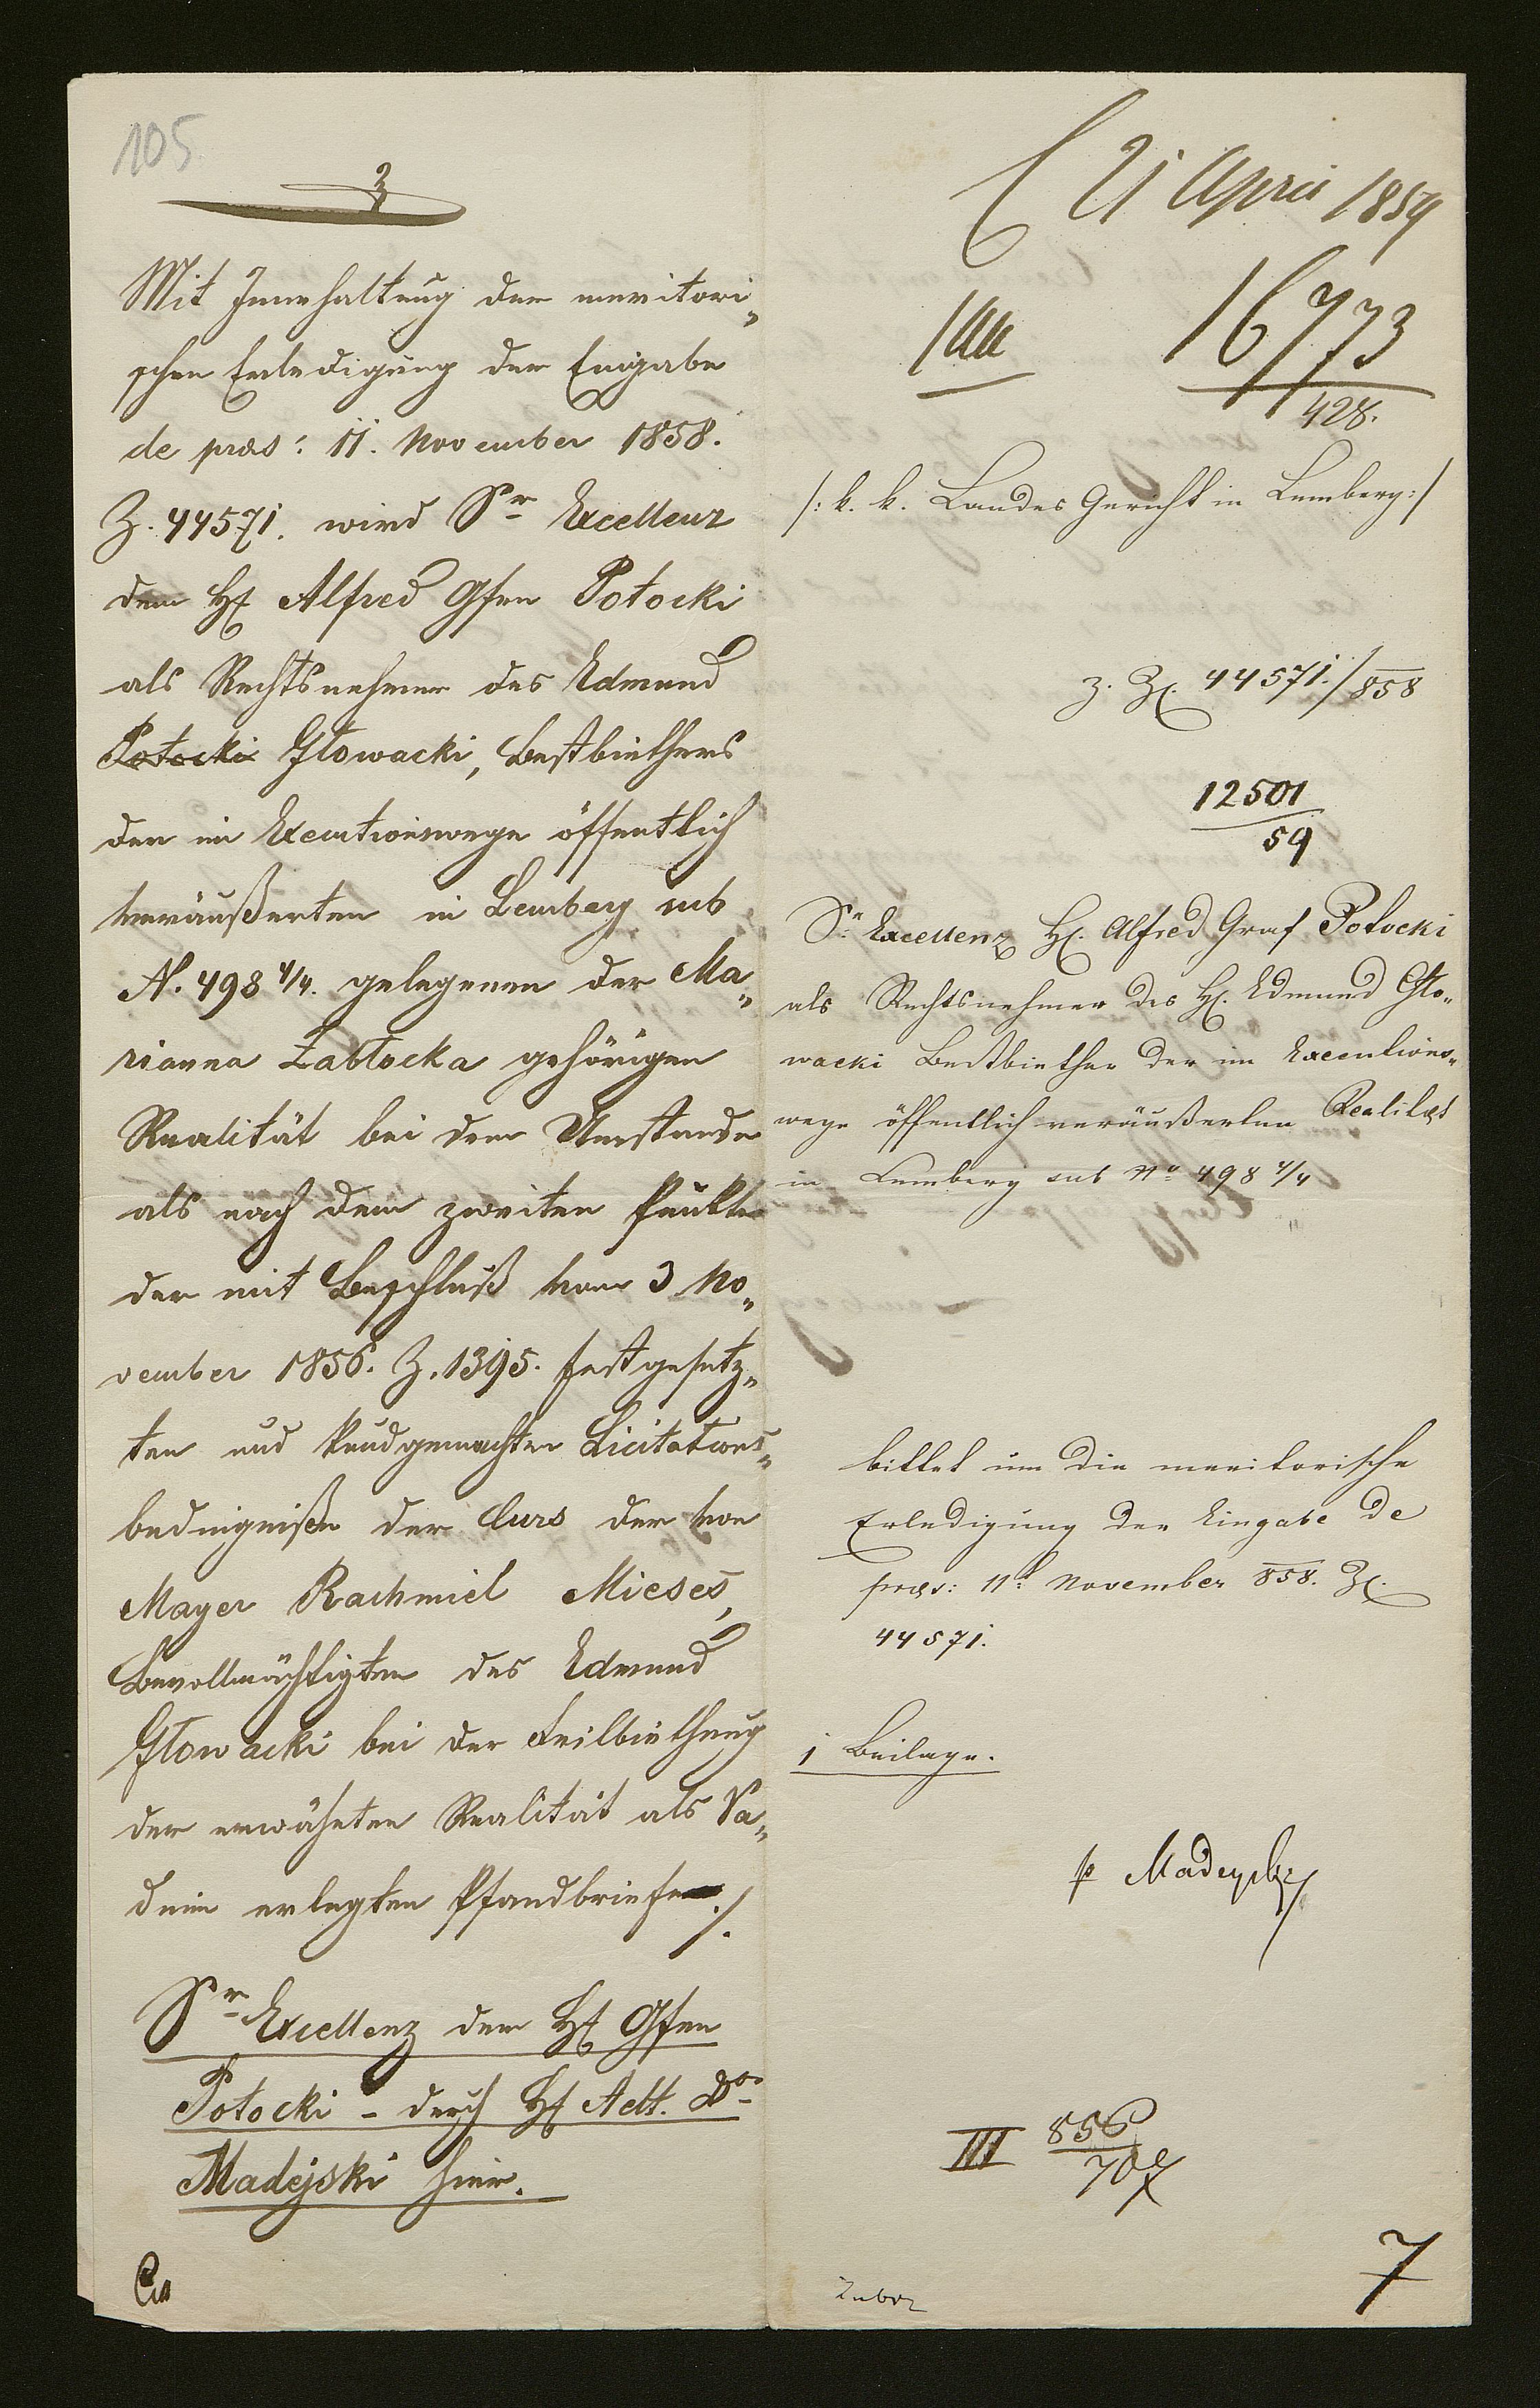 105
Mit Innehaltung der meritori„
schen Erledigung der Eingabe
de präs: 11. November 1858.
Z. 44571. wird Sr Excellenz
dem H Alfred Gfen Potocki
als Rechtsnehmer des Edmund
Potocki Głowacki, Bestbiethers
der im Executionswege öffentlich
veräußerten in Lemberg sub
N. 498 4/4. gelegenen der Ma„
rianna Zabłocka gehörigen
Realität bei dem Umstande
als nach dem zweiten Punkte
der mit Beschluß vom 3 No„
vember 1856. Z. 1395. festgesetz„
ten und kundgemachten Licitations„
bedingniße der Curs der von
Mayer Rachmiel Mieses,
Bevollmächtigten des Edmund
Głowacki bei der Feilbiethung
der erwähnten Realität als Va„
dium erlegten Pfandbriefe
./.
Sr Excellenz dem H Gfen
Potocki – durch H Adt. Dr
Madejski hier.
21 April 1859
16773
428.
/: k. k. Landes Gericht in Lemberg :/
z. Z. 44571./858
12501
59
Sr Excellenz H. Alfred Graf Potocki
als Rechtsnehmer des H. Edmund Gło„
wacki Bestbiether der im Executions„
wege öffentlich veräußerten Realität
in Lemberg sub No 498 4/4
bittet um die meritorische
Erledigung der Eingabe de
präs: 11. November 858. Z.
44571.
1 Beilage.
Madeyski
III 856
707
7